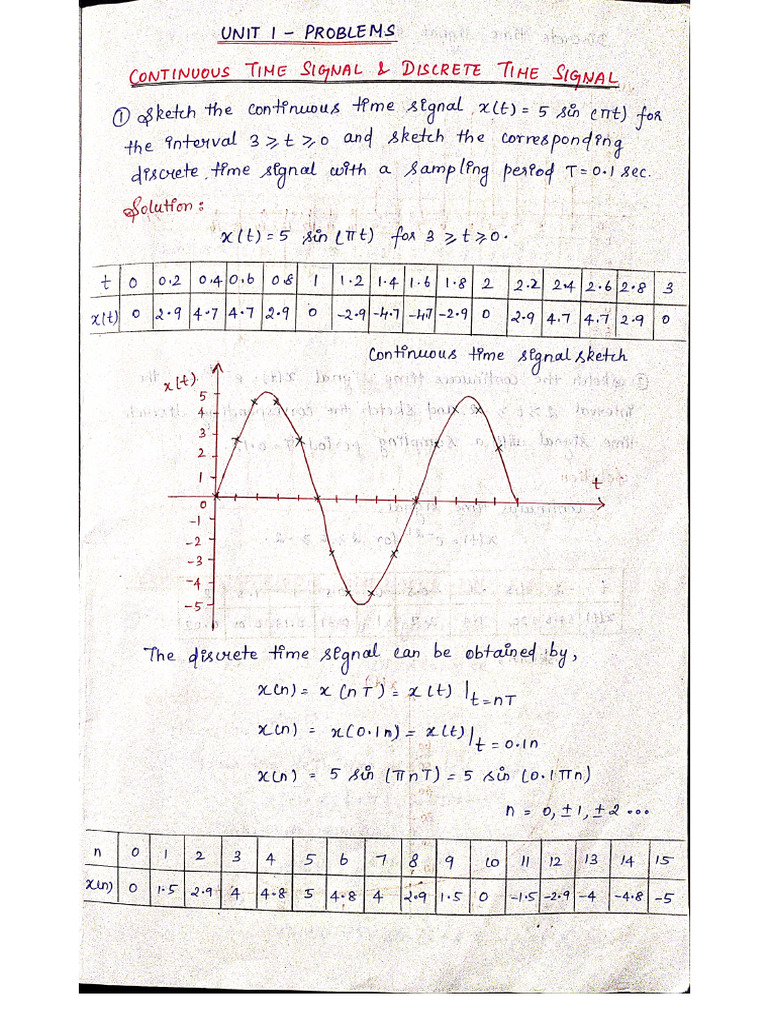 UNIT 1 - PROBLEMS
CONTINUOUS TIME SIGNAL & DISCRETE TIME SIGNAL
① Sketch the continuous time signal x(t) = 5 sin (πt) for
the interval 3 ⩾ t ⩾ 0 and sketch the corresponding
discrete time signal with a sampling period T = 0.1 sec.
Solution:
x(t) = 5 sin (πt) for 3 ⩾ t ⩾ 0.
t 0 0.2 0.4 0.6 0.8 1 1.2 1.4 1.6 1.8 2 2.2 2.4 2.6 2.8 3
x(t) 0 2.9 4.7 4.7 2.9 0 -2.9 -4.7 -47 -2.9 0 2.9 4.7 4.7 2.9 0
Continuous time signal sketch
x(t).
5
4
3
2
1
t
0
-1
-2
-3
-4
-5
The discrete time signal can be obtained by,
x(n) = x(nT) = x(t) |t=nT
x(n) = x(0.1n) = x(t)|t = 0.1n
x(n) = 5 sin (πnT) = 5 sin (0.1πn)
n = 0, ±1, ±2 ...
n 0 1 2 3 4 5 6 7 8 9 10 11 12 13 14 15
x(n) 0 1.5 2.9 4 4.8 5 4.8 4 2.9 1.5 0 -1.5 -2.9 -4 -4.8 -5